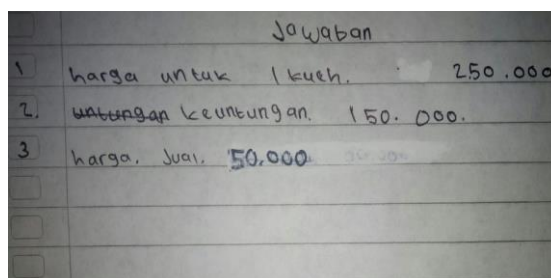 Jawaban
1 harga untuk 1 kueh. 250.000
2. keuntungan. 150.000.
3 harga. Jual. 50.000